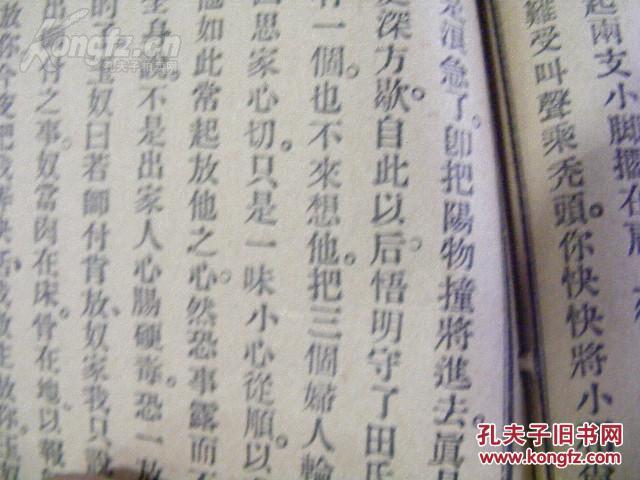 起兩支小脚擱在肩
難受叫聲乘禿頭。你快快將小
急了。卽把陽物撞將進去。眞
更深方歇。自此以后。悟明守了田氏
有一個。也不來想他。把三個婦人輪
思家心切。只是一味小心從順。以
他如此。常起放他之心。然恐事露而不
全身。不是出家人心腸硬毒。恐一放
的了。奴曰。若師付肯放奴家。我只說
出 付之事。奴當肉在床。骨在地。以報
放你今夜把我弄快活我放在放你
Kongfz.com
孔夫子旧书网
孔夫子旧书网
KONGFZ.COM